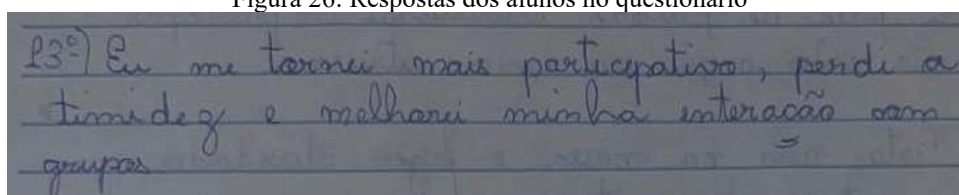 Figura 26: Respostas dos alunos no questionário
13º) Eu me tornei mais participativo, perdi a
timidez e melhorei minha interacão com
grupos